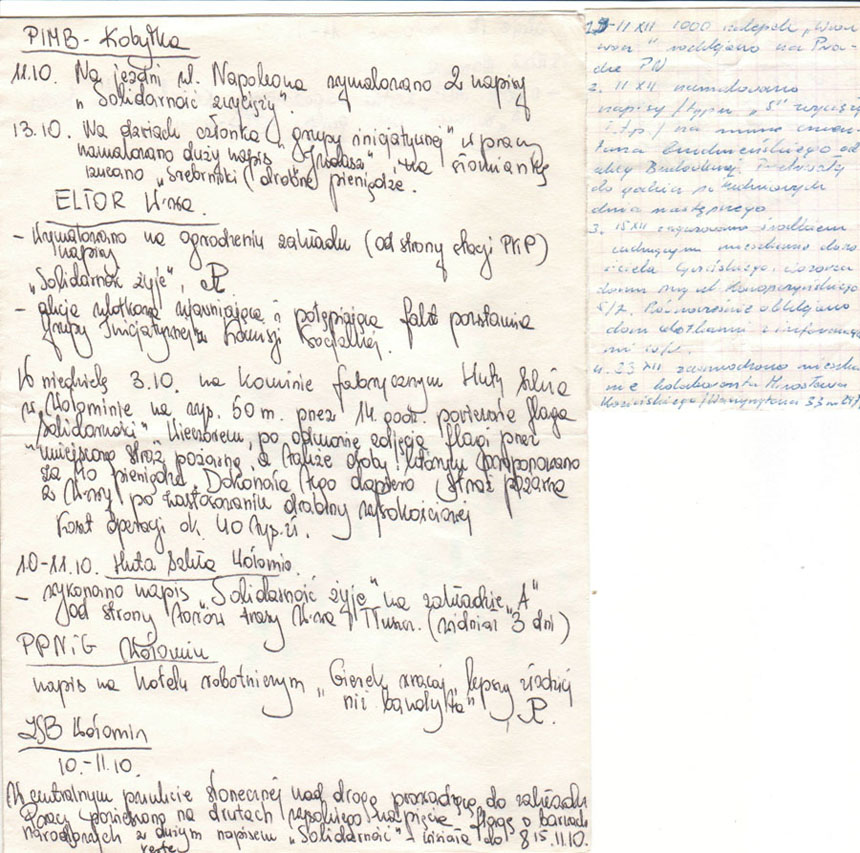 PIMB - Kobyłka
11.10. Na jezdni ul. Napoleona wymalowano 2 napisy
"Solidarność zwycięży".
13.10. Na drzwiach członka "grupy inicjatywnej" w pracy
namalowano duży napis "Judasz" na
"Srebrniki" (drobne) pieniądze.
ELTOR W-wa.
- Wymalowano na ogrodzeniu zakładu (od strony stacji PKP)
napisy
"Solidarność żyje",
- akcja ulotkowa ujawniająca i potępiająca fakt powstania
Grupy Inicjatywnej Komisji Socjalnej.
W niedzielę 3.10. na kominie fabrycznym Huty Szkła
w Wołominie na wys. 50 m. przez 14 godz. powiewała flaga
"Solidarności". Wieczorem, po odmowie zdjęcia flagi przez
miejscową straż pożarną, a także osoby którym proponowano
za to pieniądze. Dokonała tego dopiero straż pożarna
z W-wy po zastosowaniu drabiny wysokościowej
Koszt operacji ok. 40 tys. zł.
10-11.10. Huta Szkła Wołomin
- wykonano napis "Solidarność żyje" na zakładzie "A"
od strony torów trasy W-wa Tłuszcz. (widniał 3 dni)
PPNiG Wołomin
napis na hotelu robotniczym "Gierek wracaj, lepszy złodziej
niż bandyta"
ZSB Wołomin
10.-11.10.
W centralnym punkcie nad drogą prowadzącą do zakładu
pracy powieszono na drutach wysokiego napięcia flagę o barwach
narodowych z dużym napisem "Solidarność" - wisiała do 8 15. 11.10.
11 XII 1000
rozklejono na
2. 11 XII namalowano
napisy /typu "S" zwycięży
itp/ na murze
od
ulicy Budowlanej. Przetrwały
do godzin
dnia następnego
3. 15 XII środkiem
cuchnącym mieszkanie
w
domu przy ul.
5/7. Równocześnie oklejono
dom ulotkami
4. 23 XII mieszka
nie kolaboranta Mirosława